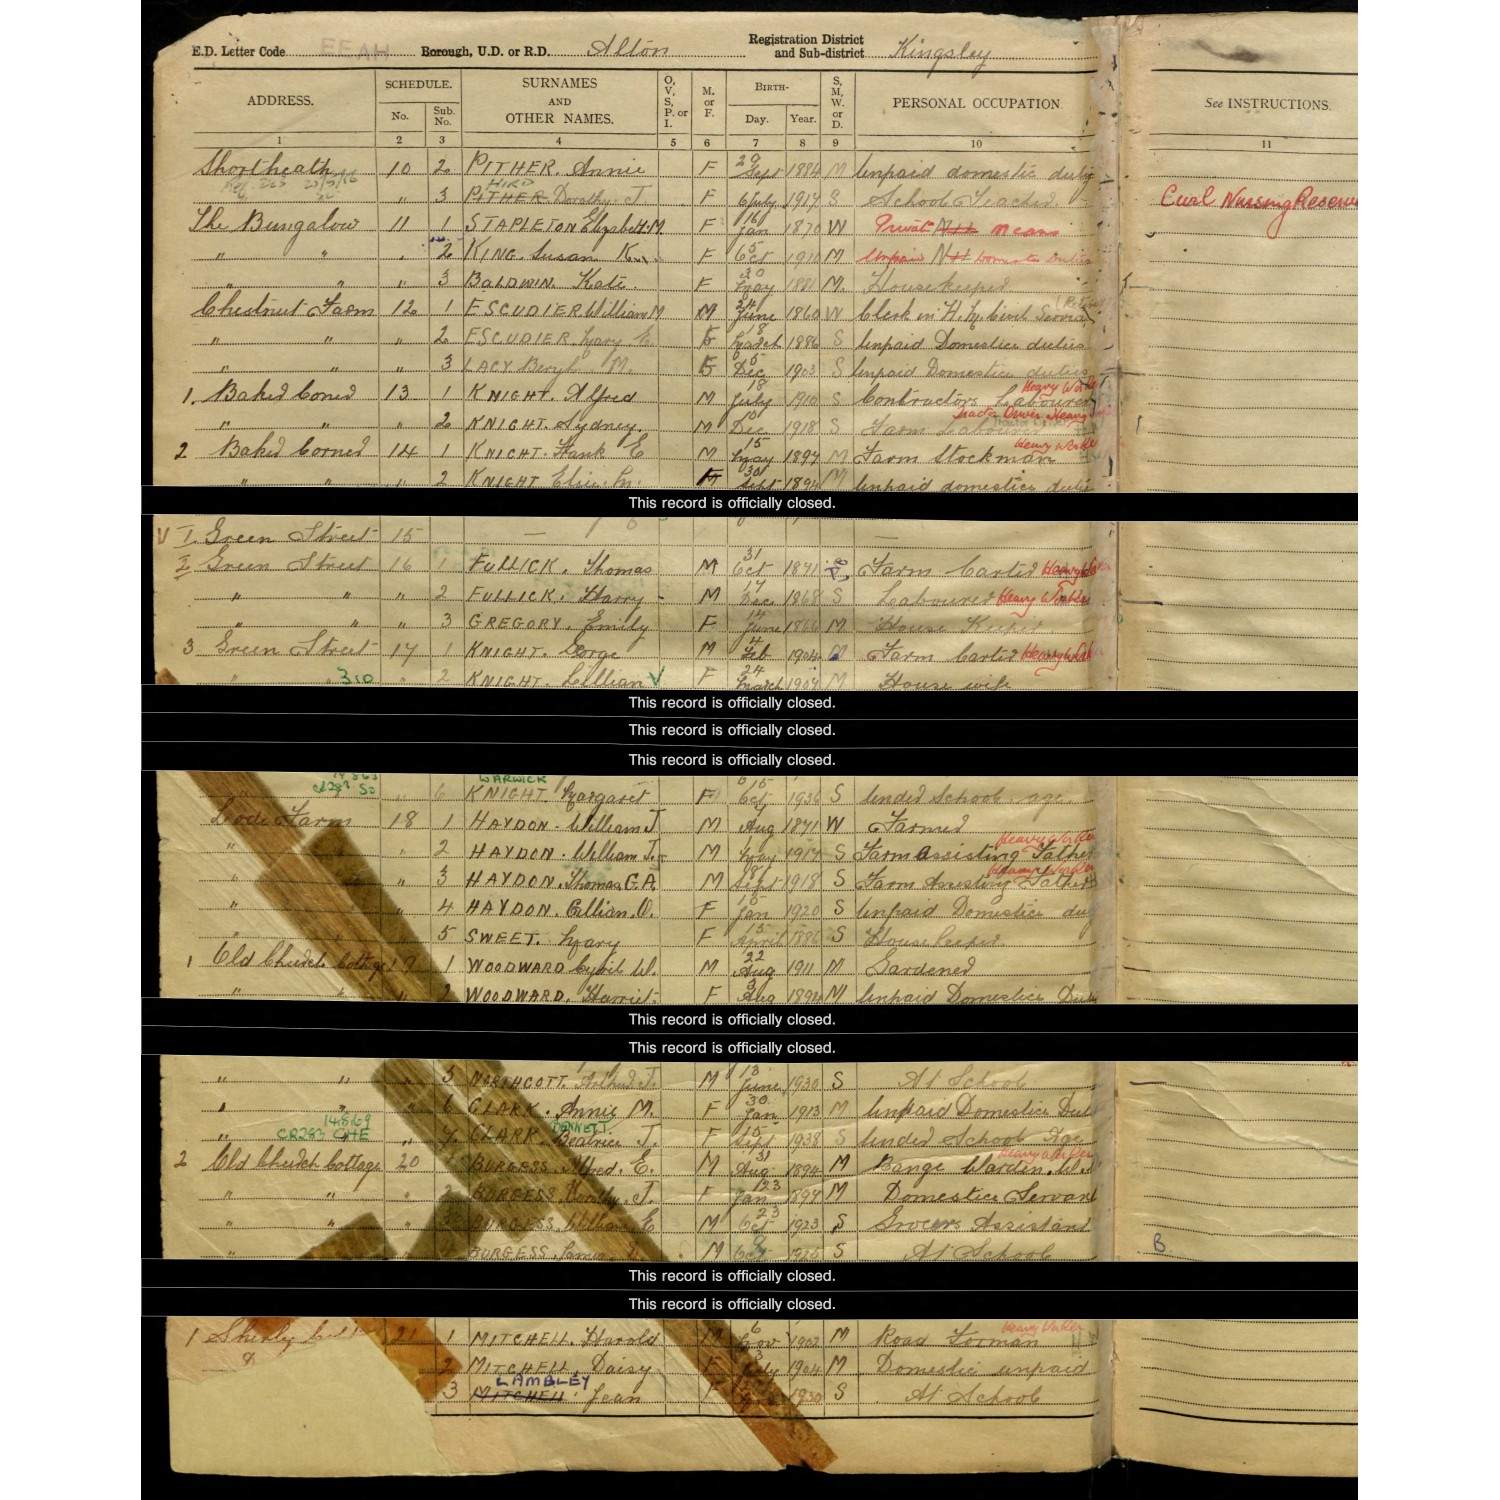 E.D. Letter Code EEAH Borough, U.D. or R.D. Alton Registration District and Sub-district Kingsley
ADDRESS. SCHEDULE. No. Sub. No. SURNAMES AND OTHER NAMES. O, V, S, P. or I. M. or F. BIRTH- Day. Year. S, M, W. or D. PERSONAL OCCUPATION. See INSTRUCTIONS.
1 2 3 4 5 6 7 8 9 10 11
Shortheath 10 2 PITHER. Annie F 29 Sept 1884 M Unpaid domestic duties
" 3 PITHER HIRD Dorothy. J. F 6 July 1917 S School Teacher. Civil Nursing Reserve
The Bungalow 11 1 STAPLETON Elizabeth. M F 16 Jan 1870 W Private Nil means
" " " 2 KING. Susan K. F 5 Oct 1910 M Unpaid Nil Domestic Duties
" " 3 BALDWIN. Kate. F 30 May 1881 M. Housekeeper
Chestnut Farm 12 1 ESCUDIER William M M 24 June 1860 W Clerk in H.M. Civil Service
" " " 2 ESCUDIER. Mary E. F 18 March 1886 S Unpaid Domestic duties
" " " 3 LACY. Beryl. M. F 5 Dec 1903 S Unpaid Domestic duties
1. Baker Corner 13 1 KNIGHT. Alfred M 18 July 1910 S Contractors Labourer Heavy Worker
" " " 2 KNIGHT. Sydney. M 10 Dec 1918 S Farm Labourer Tractor Driver Heavy
2 Baker Corner 14 1 KNIGHT. Frank E M 15 May 1894 M Farm Stockman Heavy Worker
" " " 2 KNIGHT Elsie. M. F 30 Sept 1894 M Unpaid domestic duties
This record is officially closed.
V 1. Green Street 15 — —
2 Green Street 16 1 FULLICK. Thomas M 31 Oct 1871 Farm Carter Heavy Worker
" " " 2 FULLICK. Harry - M 17 Dec 1868 S Labourer Heavy Worker
" " " 3 GREGORY. Emily F 14 June 1866 M House Keeper.
3 Green Street 17 1 KNIGHT. George M 4 Feb 1904 M Farm Carter Heavy Worker
" " 310 " 2 KNIGHT. Lillian V F 24 March 1907 M House wife
This record is officially closed.
This record is officially closed.
This record is officially closed.
" 6 KNIGHT WARWICK Margaret F 15 Oct 1936 S Under School age.
Lode Farm 18 1 HAYDON. William J M 4 Aug 1871 W Farmer
" 2 HAYDON. William J. M May 1917 S Farm Assisting Father Heavy Worker
" " 3 HAYDON. Thomas G. P. M 18 Sept 1918 S Farm Assisting Father Heavy Worker
" 4 HAYDON. Lillian. O. F 15 Jan 1920 S Unpaid Domestic du
" 5 SWEET. Mary F 15 April 1886 S Housekeeper
1 Old Church Cottage 19 1 WOODWARD Cyril W. M 22 Aug 1911 M Gardener
" " 2 WOODWARD. Harriet. F 3 Aug 1894 M Unpaid Domestic Duties
This record is officially closed.
This record is officially closed.
" " " 5 NORTHCOTT. Arthur J. M 13 June 1930 S At School
" " 6 CLARK. Annie M. F 30 Jan 1913 M Unpaid Domestic Duties
" 14.8.69 CR283 CHE " 7 CLARK. DENNETT Beatrice J. F 15 Sept 1938 S Under School Age
2 Old Church Cottage 20 1 BURGESS. Alfred. E. M 31 Aug 1894 M Range Warden. W.D Heavy Worker
" " " 2 BURGESS. Dorothy. J. F 23 Jan 1897 M Domestic Servant
" " " 3 BURGESS. William E M 23 Oct 1923 S Grocers Assistant
" BURGESS. M 8 Oct 1925 S At School B
This record is officially closed.
This record is officially closed.
1 Shirley 21 1 MITCHELL. Harold M 6 Nov 1902 M Road Forman Heavy Worker
2 MITCHELL. Daisy F 3 July 1904 M Domestic unpaid
3 MITCHELL LAMBLEY Jean F 1930 S At School